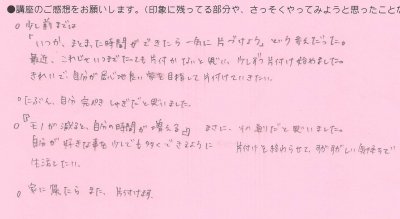 ●講座のご感想をお願いします。(印象に残ってる部分や、さっそくやってみようと思ったことな
○ 少し前までは
「いつか、まとまった時間ができたら一気に片づけよう」という考えだった。
最近、これじゃいつまでたっても片付かないと思い、少しずつ片付け始めました。
きれいで、自分が居心地良い家を目指して片付けていきたい。
○ たぶん、自分 完ペキしゅぎだと思いました。
○ 『モノが減ると、自分の時間が増える』 まさに、その通りだと思いました。
自分が好きな事を少しでも多くできるように 片付けを終わらせて、すがすがしい気持ちで
生活したい。
○ 家に帰たら また、片付けます。